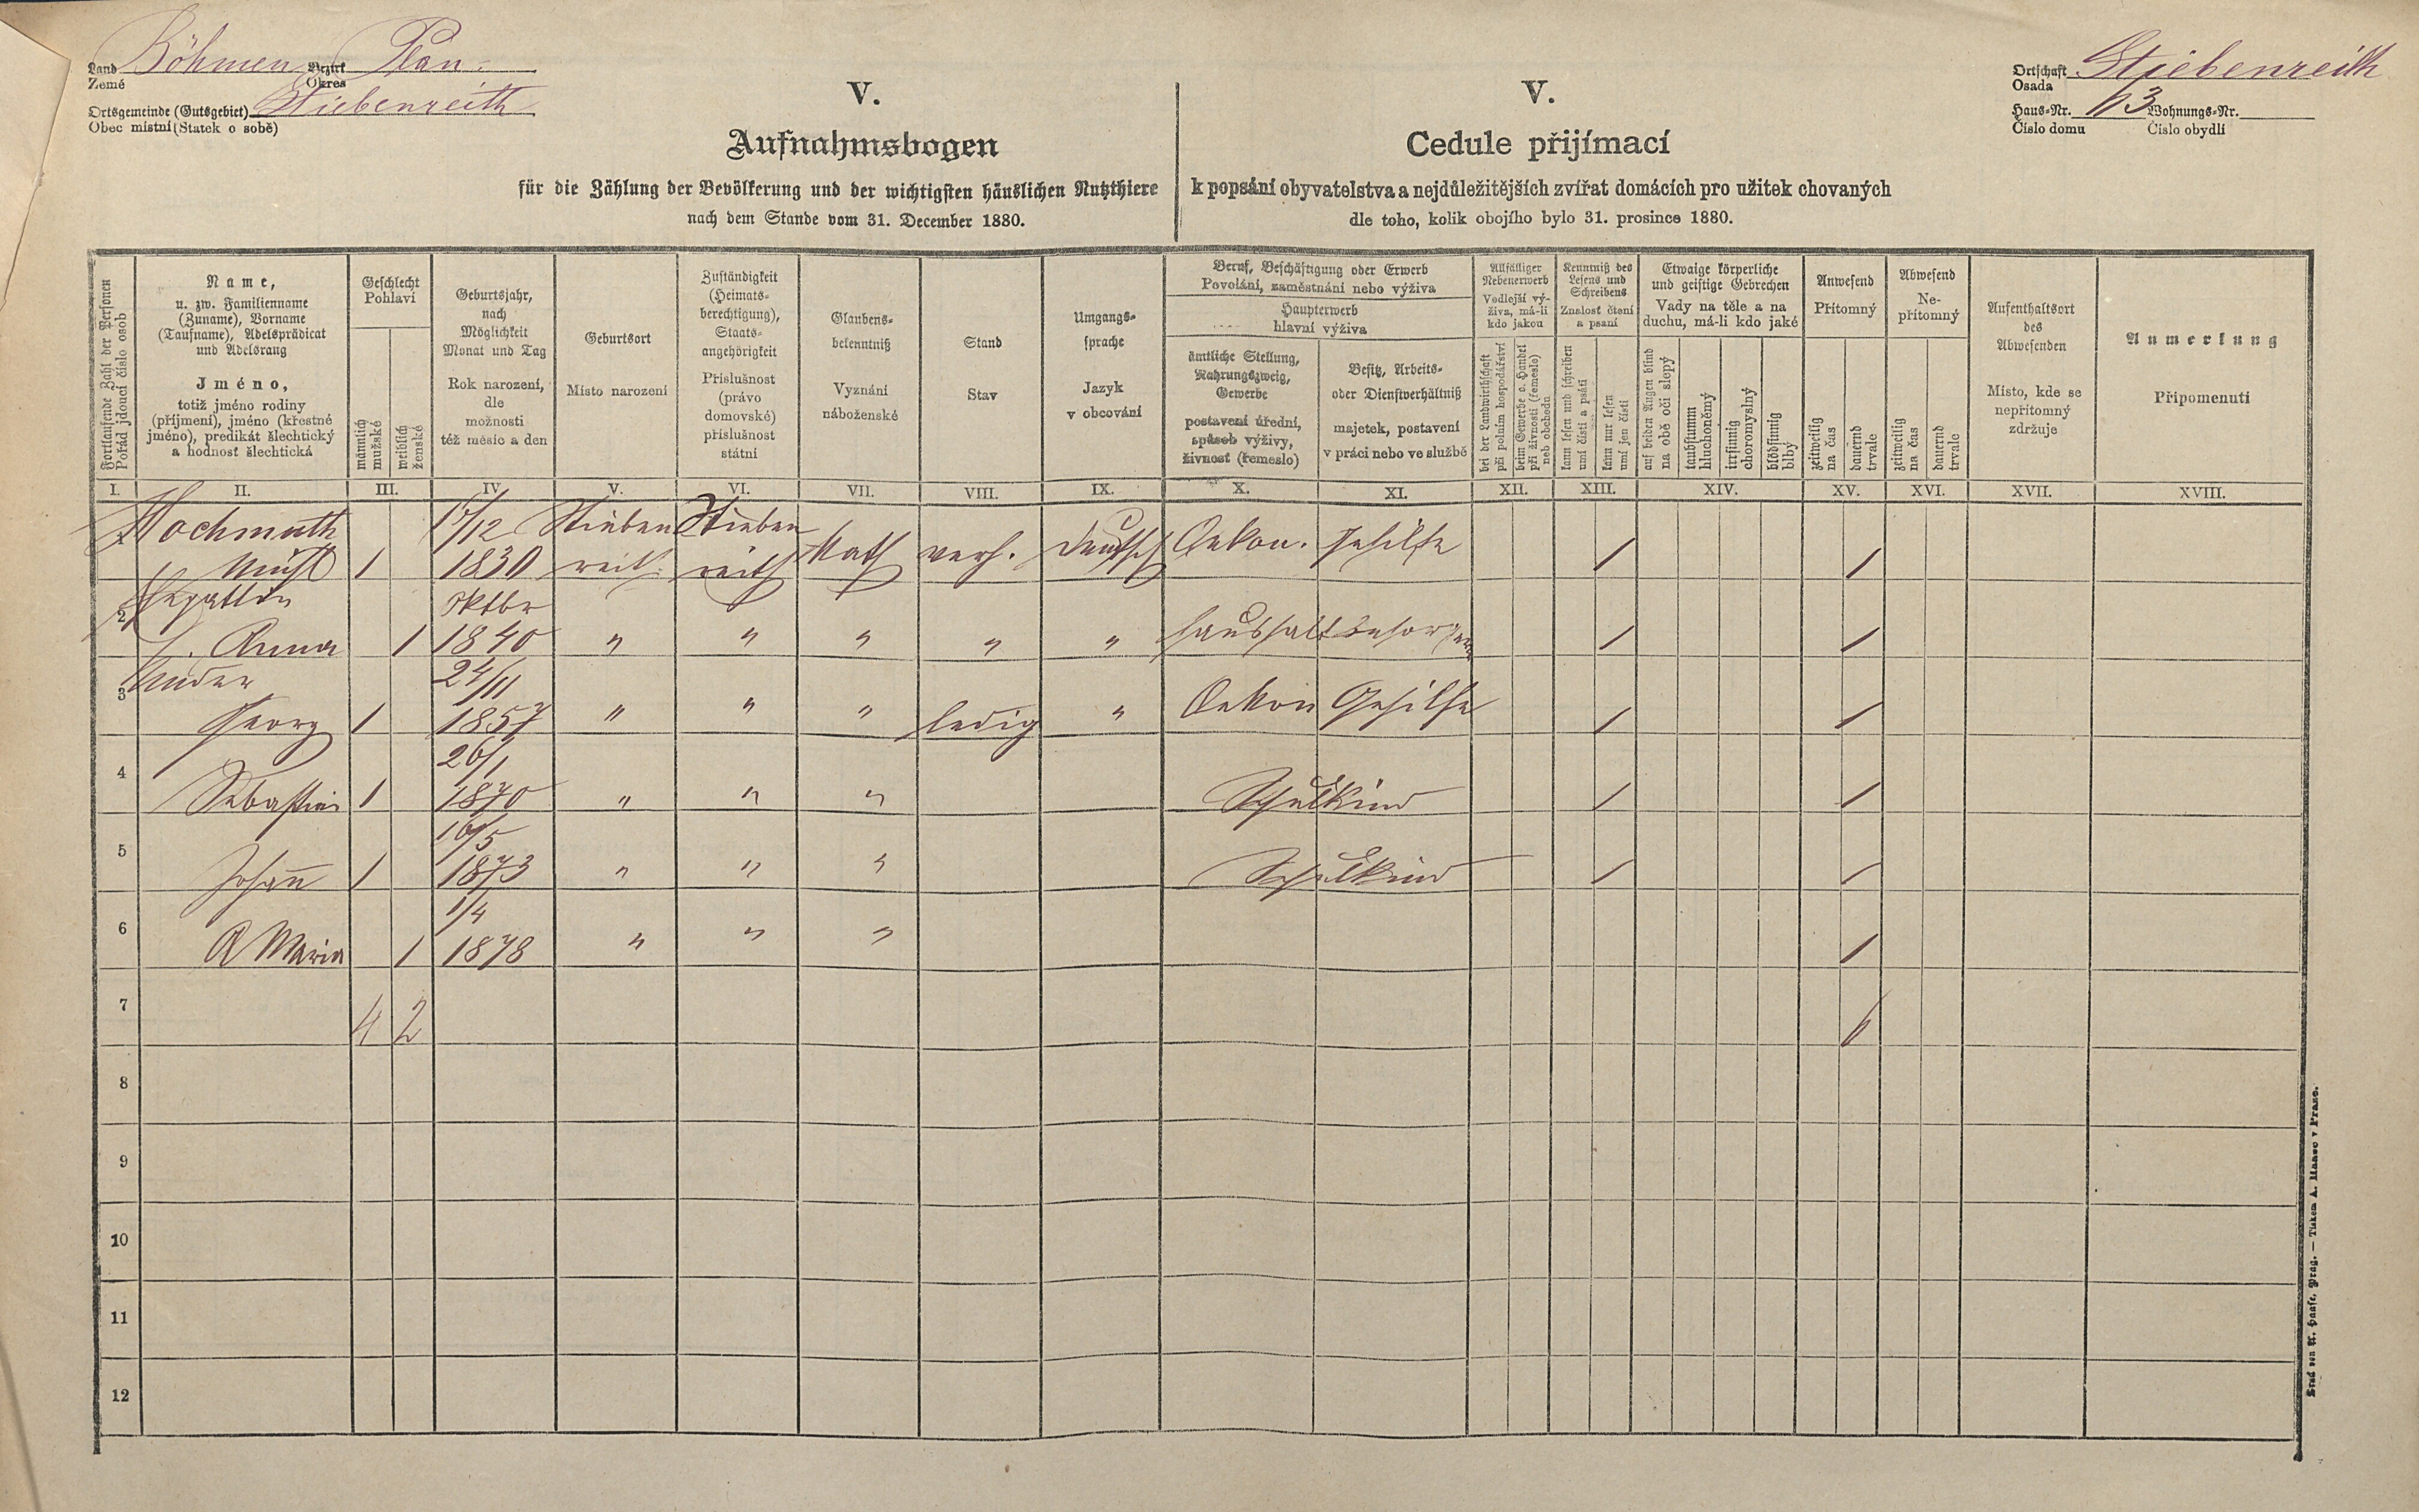 Land Böhmen Bezirk Plan
Země Okres
Ortsgemeinde (Gutsgebiet) Stiebenreith
Obec místní (Statek o sobě)
V.
Aufnahmsbogen
für die Zählung der Bevölkerung und der wichtigsten häuslichen Nutzthiere
nach dem Stande vom 31. December 1880.
V.
Cedule přijímací
k popsání obyvatelstva a nejdůležitějších zvířat domácích pro užitek chovaných
dle toho, kolik obojího bylo 31. prosince 1880.
Ortschaft Stiebenreith
Osada
Haus-Nr. 63 Wohnungs-Nr.
Číslo domu Číslo obydlí
Fortlaufende Zahl der Personen
Pořád jdoucí číslo osob
Name,
u. zw. Familienname
(Zuname), Vorname
(Taufname), Adelsprädicat
und Adelsrang
Jméno,
totiž jméno rodiny
(příjmení), jméno (křestné
jméno), predikát šlechtický
a hodnost šlechtická
Geschlecht
Pohlaví
männlich
mužské
weiblich
ženské
Geburtsjahr,
nach
Möglichkeit
Monat und Tag
Rok narození,
dle
možnosti
též měsíc a den
Geburtsort
Místo narození
Zuständigkeit
(Heimats-
berechtigung),
Staats-
angehörigkeit
Příslušnost
(právo
domovské)
příslušnost
státní
Glaubens-
bekenntniß
Vyznání
náboženské
Stand
Stav
Umgangs-
sprache
Jazyk
v obcování
Beruf, Beschäftigung oder Erwerb
Povolání, zaměstnání nebo výživa
Haupterwerb
hlavní výživa
ämtliche Stellung,
Nahrungszweig,
Gewerbe
postavení úřední,
způsob výživy,
živnost (řemeslo)
Besitz, Arbeits-
oder Dienstverhältniß
majetek, postavení
v práci nebo ve službě
Allfälliger
Nebenerwerb
Vedlejší vý-
živa, má-li
kdo jakou
bei der Landwirthschaft
při polním hospodářství
beim Gewerbe o. Handel
při živnosti (řemesle)
neb obchodu
Kenntniß des
Lesens und
Schreibens
Znalost čtení
a psaní
kann lesen und schreiben
umí čísti a psáti
kann nur lesen
umí jen čísti
Etwaige körperliche
und geistige Gebrechen
Vady na těle a na
duchu, má-li kdo jaké
auf beiden Augen blind
na obě oči slepý
taubstumm
hluchoněmý
irrsinnig
choromyslný
blödsinnig
blbý
Anwesend
Přítomný
zeitweilig
na čas
dauernd
trvale
Abwesend
Ne-
přítomný
zeitweilig
na čas
dauernd
trvale
Aufenthaltsort
des
Abwesenden
Místo, kde se
nepřítomný
zdržuje
Anmerkung
Připomenutí
I. II. III. IV. V. VI. VII. VIII. IX. X. XI. XII. XIII. XIV. XV. XVI. XVII. XVIII.
1 Hochmuth 15/12 Stieben Stieben
1 1830 reith reith Kath verh. deutsch Oekon. Gehilfe / /
2 Gegattin Oktbr
Anna 1 1840 " " " " " Haushaltbesorgerin / /
3 Kinder 24/11
Georg 1 1857 " " " ledig " Oekon Gehilfe / /
4 26/1
Sebastian 1 1870 " " " Schulkind / /
5 16/5
Johann 1 1873 " " " Schulkind / /
6 1/4
A Maria 1 1878 " " " /
7 4 2 6
8
9
10
11
12
Druck von A. Haase, Prag. — Tiskem A. Haase v Praze.